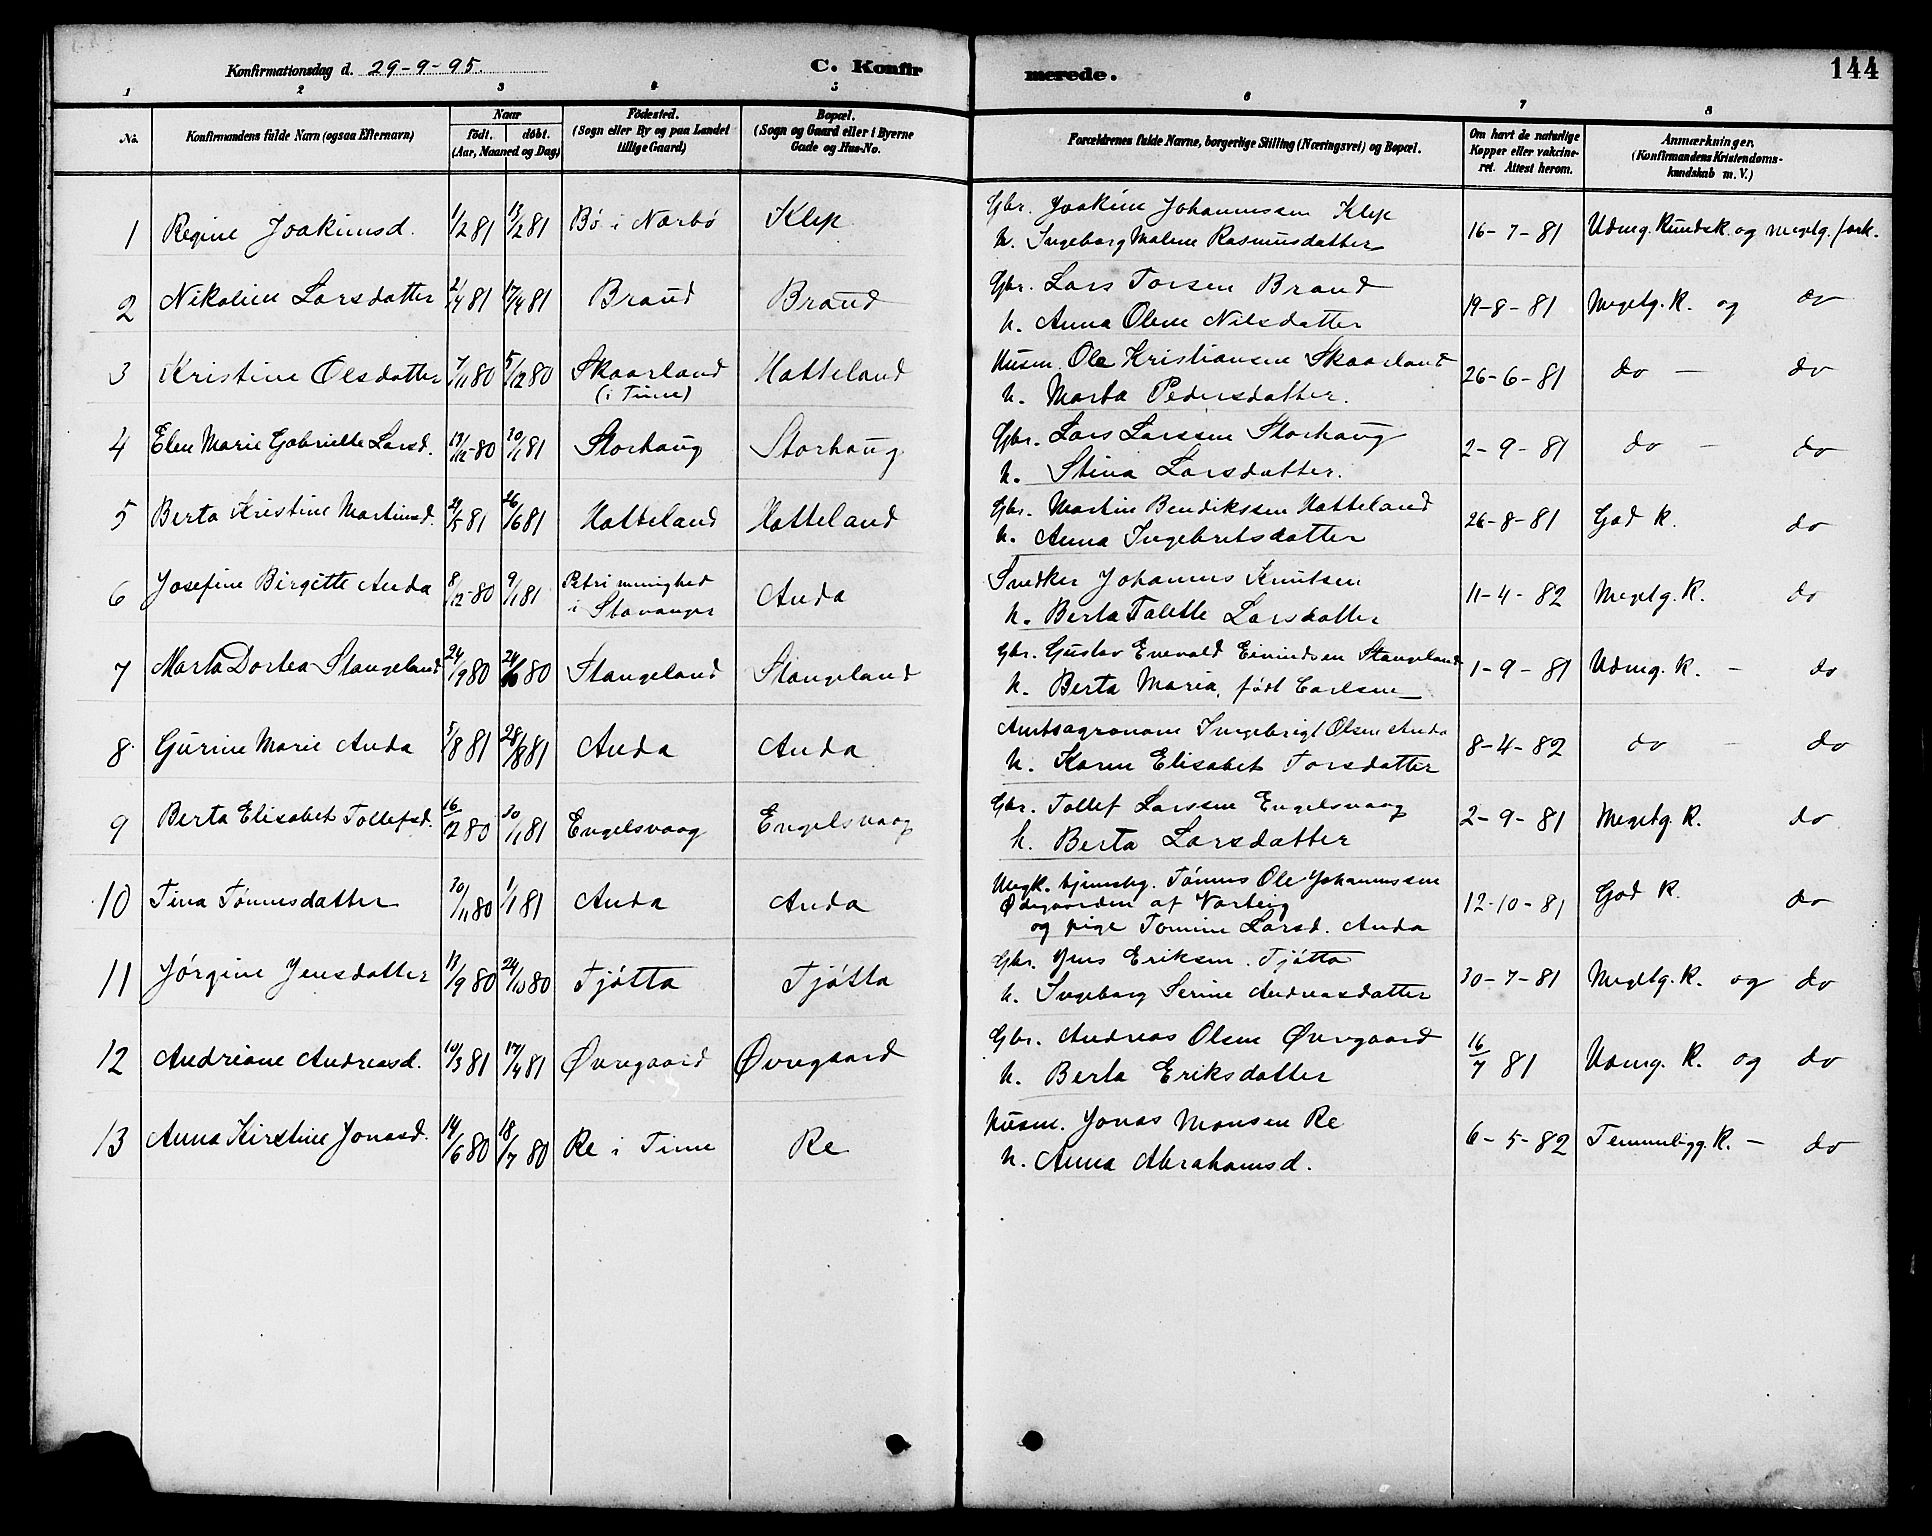 Konfirmationsdag d. 29-9-95. C. Konfirmerede. 144
1 2 3 4 5 6 7 8
No. Konfirmandens fulde Navn (ogsaa Efternavn) Naar født. døbt. (Aar, Maaned og Dag) Fødested. (Sogn eller By og paa Landet tillige Gaard) Bopæl. (Sogn og Gaard eller i Byerne Gade og Hus-No. Forældrenes fulde Navne, borgerlige Stilling (Næringsvei) og Bopæl. Om havt de naturlige Kopper eller vakcineret. Attest herom. Anmærkninger. (Konfirmandens Kristendomskundskab m. V.)
1 Regine Joakimsd. 1/2 81 13/2 81 Bø i Nærbø Klep Gbr. Joakim Johannessen Klep
h. Ingeborg Malene Rasmusdatter 16-7-81 Udmg. Kundsk. og megetg. forh.
2 Nikoline Larsdatter 2/4 81 17/4 81 Braud Braud Gbr. Lars Torsen Braud
h. Anna Oline Nilsdatter 19-8-81 Megetg. K. og do
3 Kristine Olsdatter 7/11 80 5/12 80 Skaarland (i Time) Hatteland Husm. Ole Kristiansen Skaarland
h. Marta Pedersdatter. 26-6-81 do - do
4 Elen Marie Gabrielle Larsd. 19/12-80 30/1 81 Storhaug Storhaug Gbr. Lars Larssen Storhaug
h. Stina Larsdatter. 2-9-81 do - do
5 Berta Kristine Martinsd. 29/5 81 26/6 81 Hatteland Hatteland Gbr. Martin Bendikssen Hatteland
h. Anna Ingebretsdatter 26-8-81 God K. do
6 Josefine Birgitte Anda 8/12-80 9/1 81 Petri menighed i Stavanger Anda Snedker Johannes Knutsen
h. Berta Talette Larsdatter 11-4-82 Megetg. K. do
7 Marta Dortea Stangeland 24/9 80 24/10 80 Stangeland Stangeland Gbr. Gustav Enevald Eivindsen Stangeland
h. Berta Maria, født Carlsen 1-9-81 Udmg. K. - do
8. Gurine Marie Anda 5/8 81 28/8 81 Anda Anda Amtsagronom Ingebrigt Olsen Anda
h. Karen Elisabet Torsdatter 8-4-82 do - do
9 Berta Elisabet Tollefsd. 16/12 80 30/1 81 Engelsvaag Engelsvaag Gbr. Tollef Larssen Engelsvaag
h. Berta Larsdatter 2-9-81 Megetg. K. do
10 Tina Tønnesdatter 30/11 80 1/1 81 Anda Anda Ungk. Tønnes Ole Johannessen
Ødegaarden af
og pige Tomine Larsd. Anda 12-10-81 God K. do
11 Jørgine Jensdatter 13/9 80 24/10 80 Tjøtta Tjøtta Gbr. Jens Eriksen Tjøtta
h. Ingeborg Serine Andreasdatter 30-7-81 Megetg. K. og do
12 Andriane Andreasd. 10/3 81 17/4 81 Øvregaard Øvregaard Gbr. Andreas Olsen Øvregaard
h. Berta Eriksdatter 16/7 81 Udmg. K. og do
13 Anna Kirstine Jonasd. 14/6 80 18/7 80 Re i Time Re Husm. Jonas Monsen Re
h. Anna Abrahamsd. 6-5-82 Temmeligg. K. - do